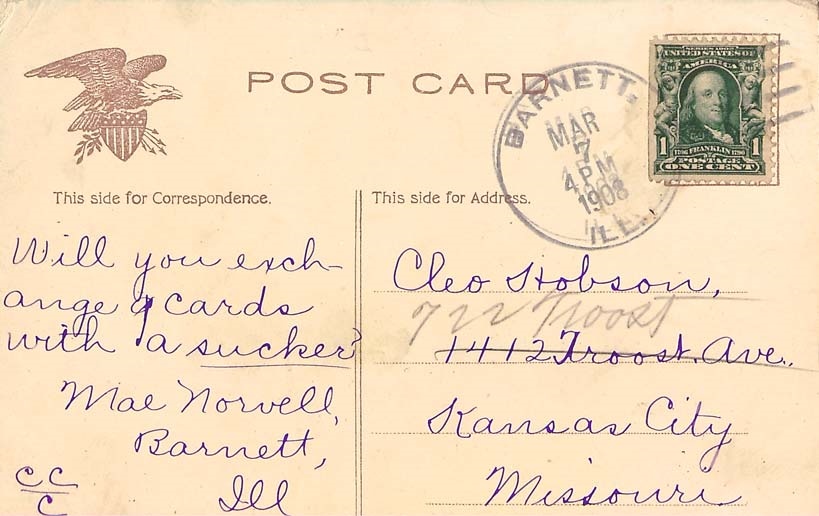 POST CARD
BARNETT.
MAR
7
4 PM
1908
ILL.
SERIES 1902
UNITED STATES OF
AMERICA
1 1706 FRANKLIN 1790 1
POSTAGE
ONE CENT
This side for Correspondence.
Will you exch-
ange cards
with a sucker?
Mae Norvell,
Barnett,
Ill
CC
C
This side for Address.
Cleo Hobson,
722 Troost
1412 Troost. Ave.
Kansas City
Missouri